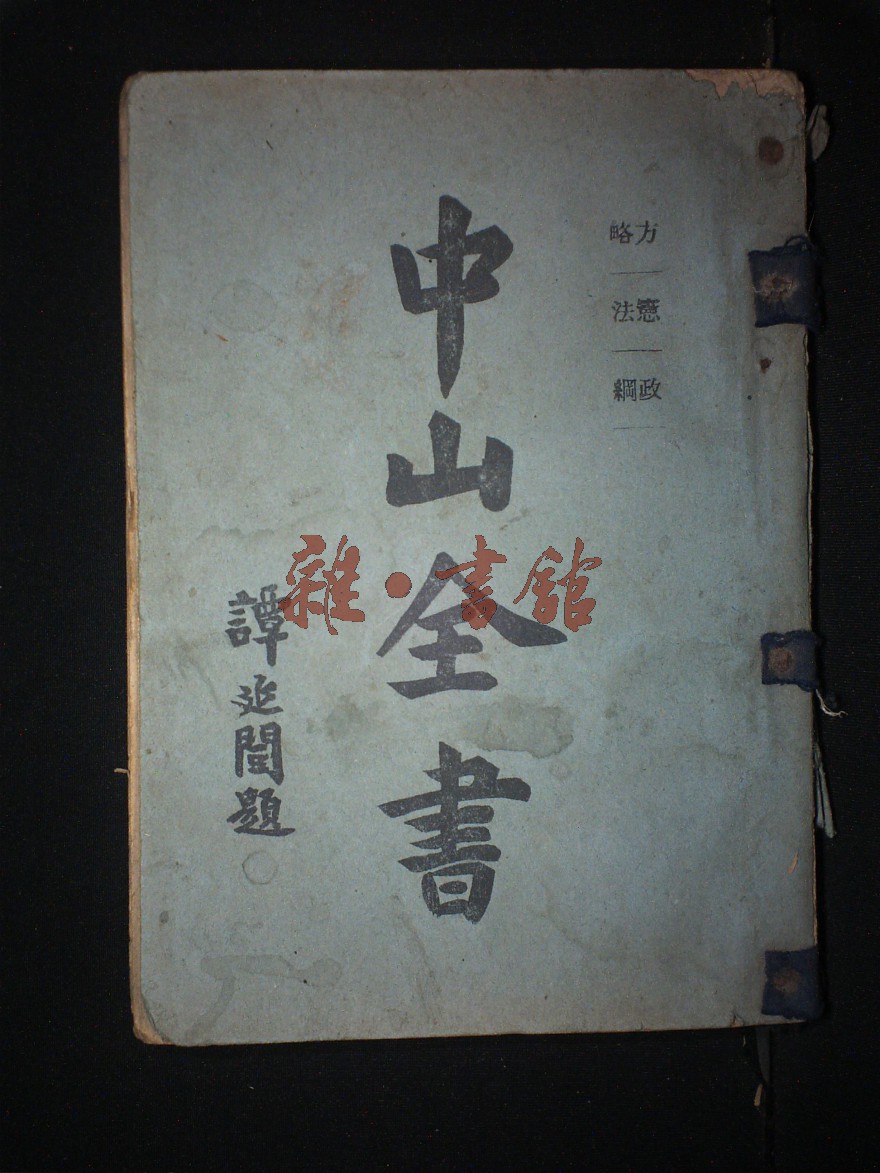 方略
憲法
政綱
中山全書
譚延闓題
雜·書館